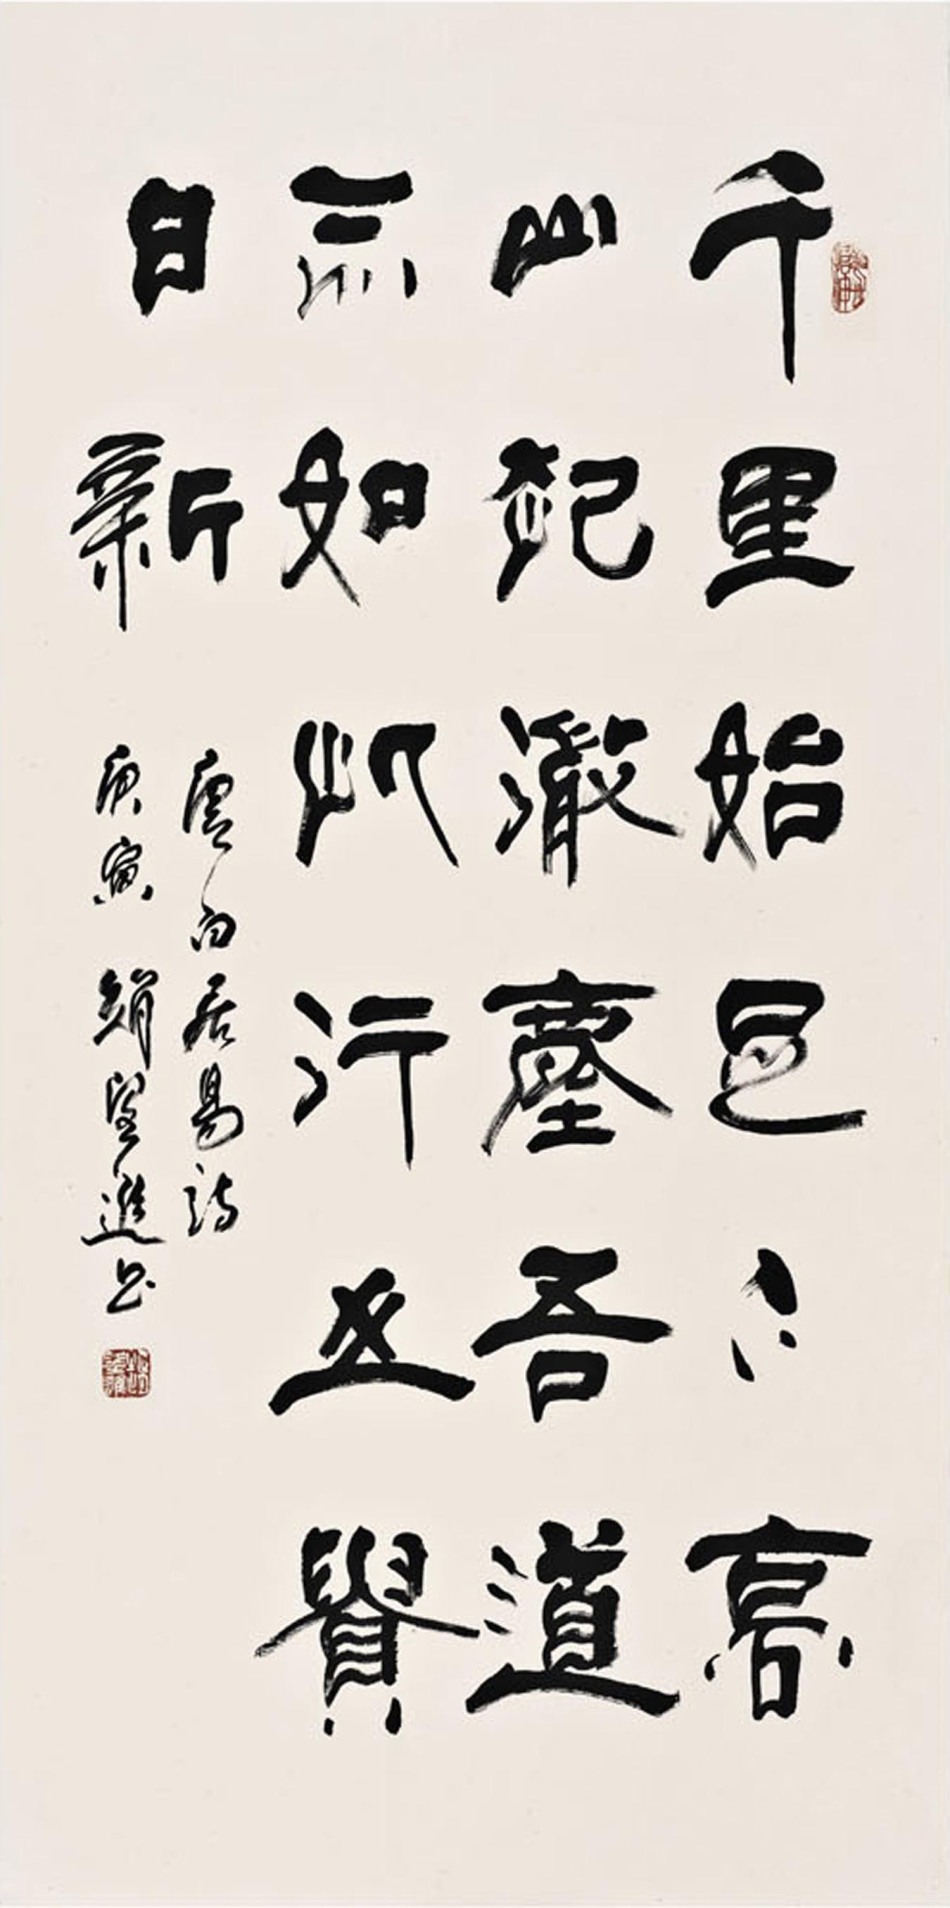 千里始足下高
山起微塵吾道
亦如此行之貴
日新
唐白居易詩
庚寅 趙望進書